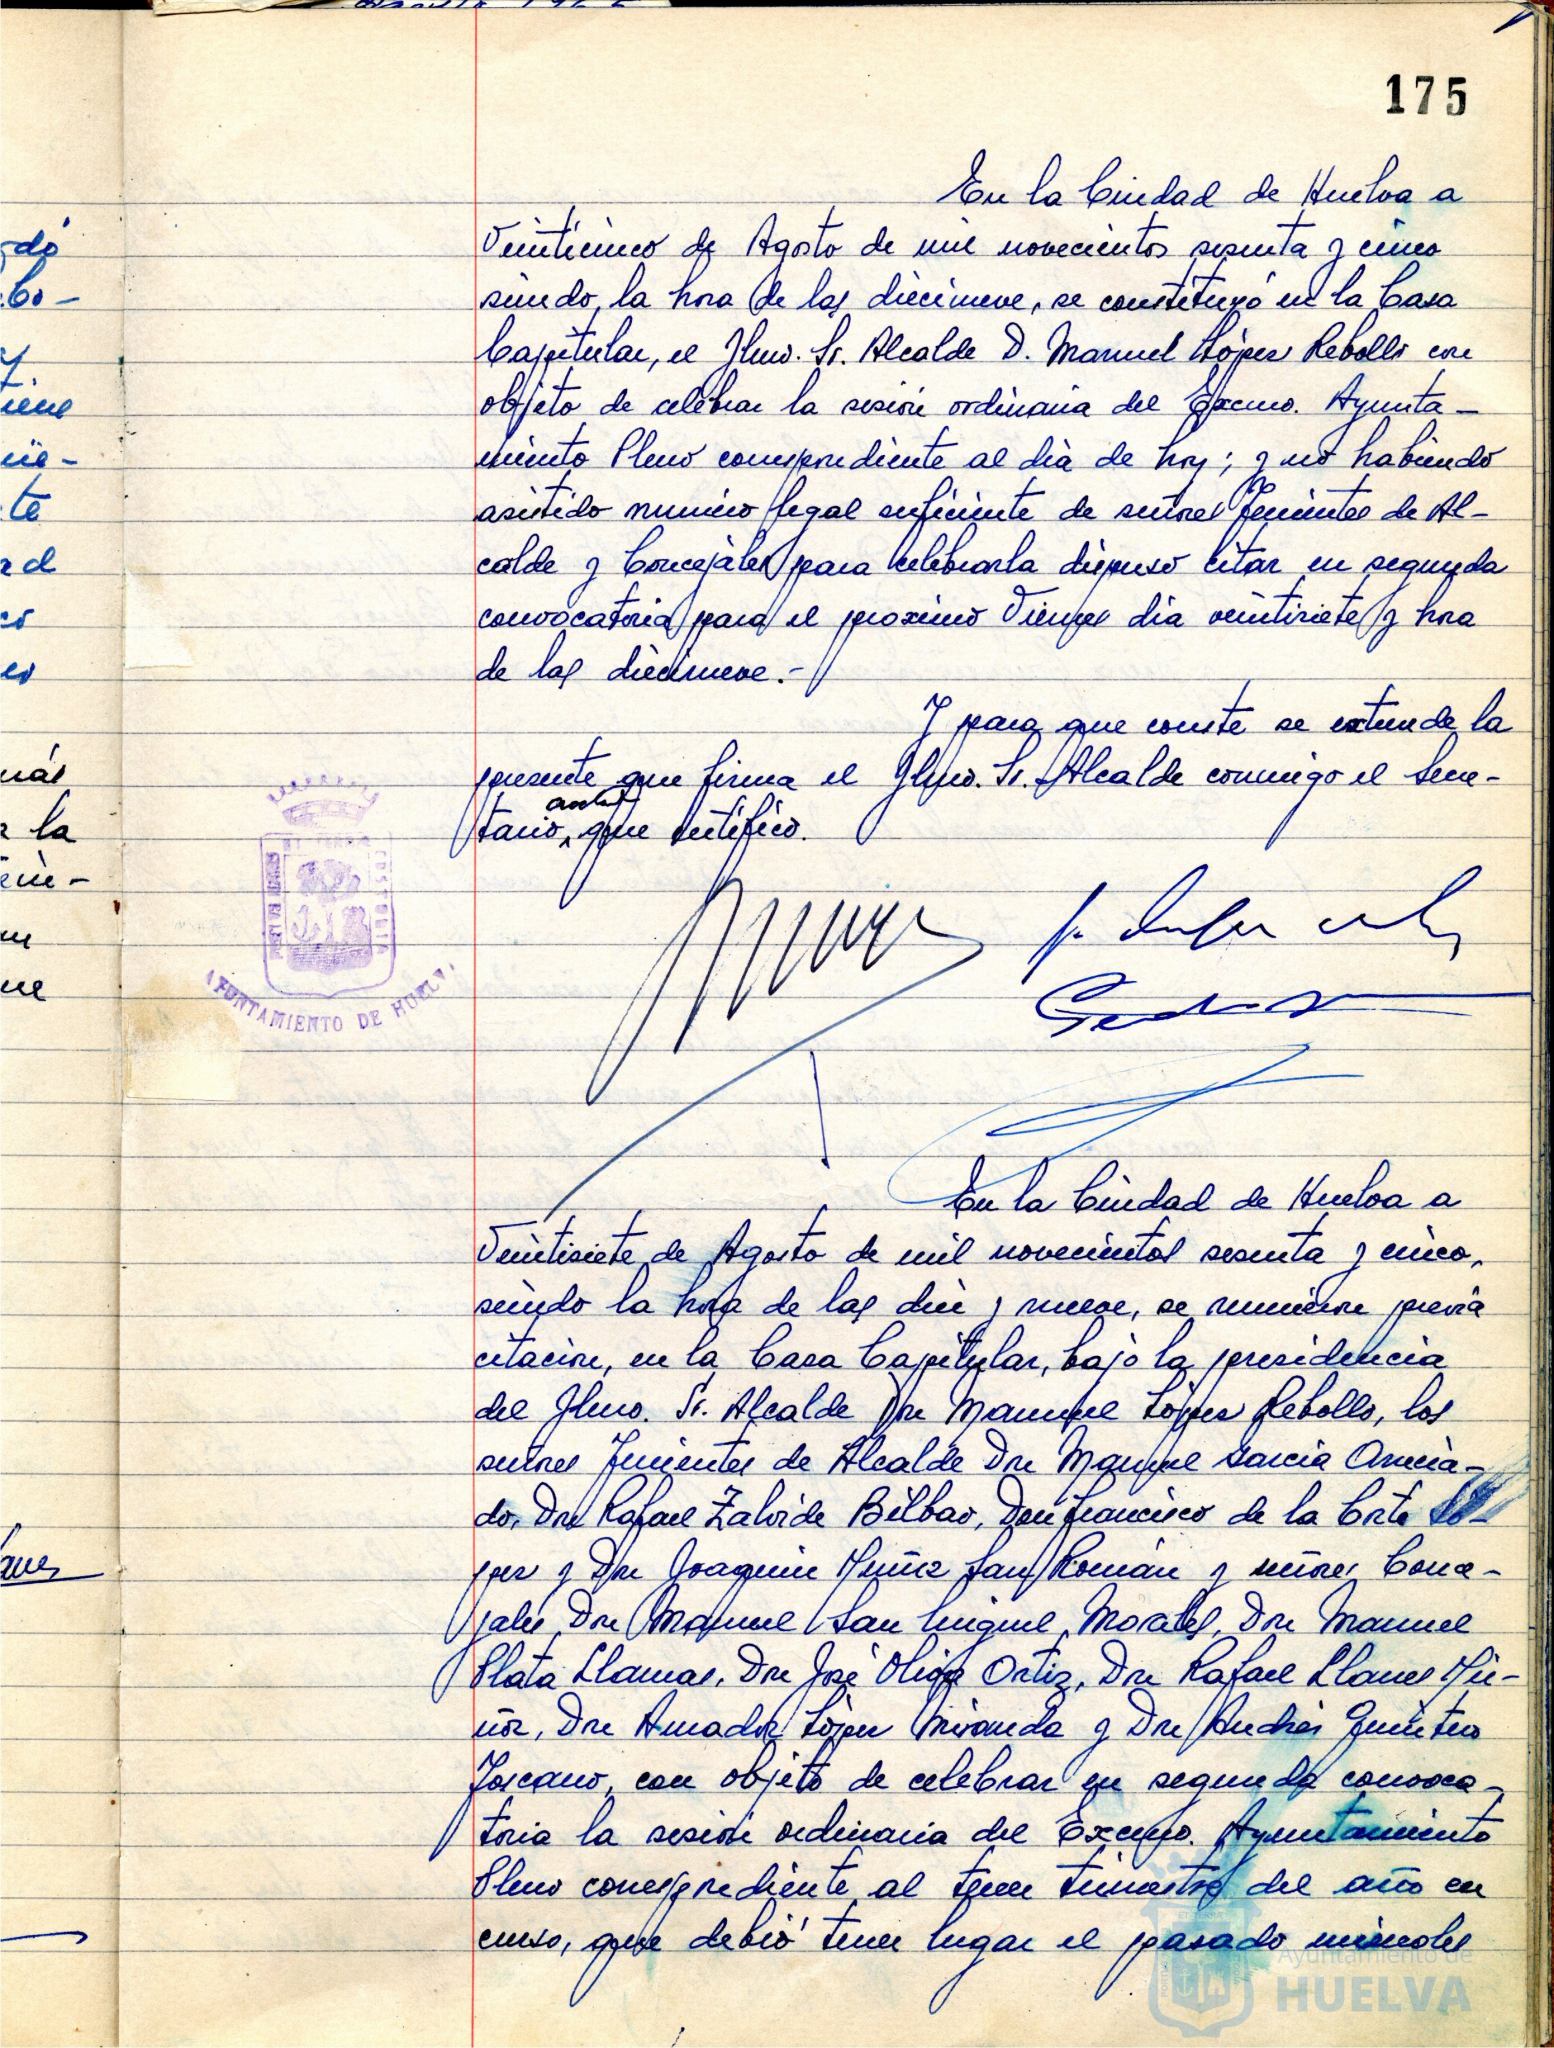 175
En la Ciudad de Huelva a
Veinticinco de Agosto de mil novecientos sesenta y cinco
siendo, la hora de las diecinueve, se constituyó en la Casa
Capitular, el Ilmo. Sr. Alcalde D. Manuel López Rebollo con
objeto de celebrar la sesión ordinaria del Excmo. Ayunta-
miento Pleno correspondiente al dia de hoy; y no habiendo
asistido numero legal suficiente de señores Tenientes de Al-
calde y Concejales para celebrarla dispuso citar en segunda
convocatoria para el proximo Viernes dia veintisiete y hora
de las diecinueve.-
Y para que conste se extiende la
presente que firma el Ilmo. Sr. Alcalde conmigo el Secre-
tario, que certifico.
AYUNTAMIENTO DE HUELVA
En la Ciudad de Huelva a
Veintisiete de Agosto de mil novecientos sesenta y cinco,
siendo la hora de las diez y nueve, se reunieron previa
citación, en la Casa Capitular, bajo la presidencia
del Ilmo. Sr. Alcalde Don Manuel López Rebollo, los
señores Tenientes de Alcalde Don Manuel Garcia
do, Don Rafael Zalvide Bilbao, Don Francisco de la Corte Ló-
pez y Don Joaquin Muñiz San Román y señores Conce-
jales Don Manuel San Miguel Morales, Don Manuel
Plata Llamas, Don José Oliva Ortiz, Don Rafael Llanes Mu-
ñoz, Don Amador López Miranda y Don Andrés Quintero
Toscano, con objeto de celebrar en segunda convoca-
toria la sesión ordinaria del Excmo. Ayuntamiento
Pleno correspondiente al tercer trimestre del año en
curso, que debió tener lugar el pasado miercoles
Ayuntamiento de
HUELVA